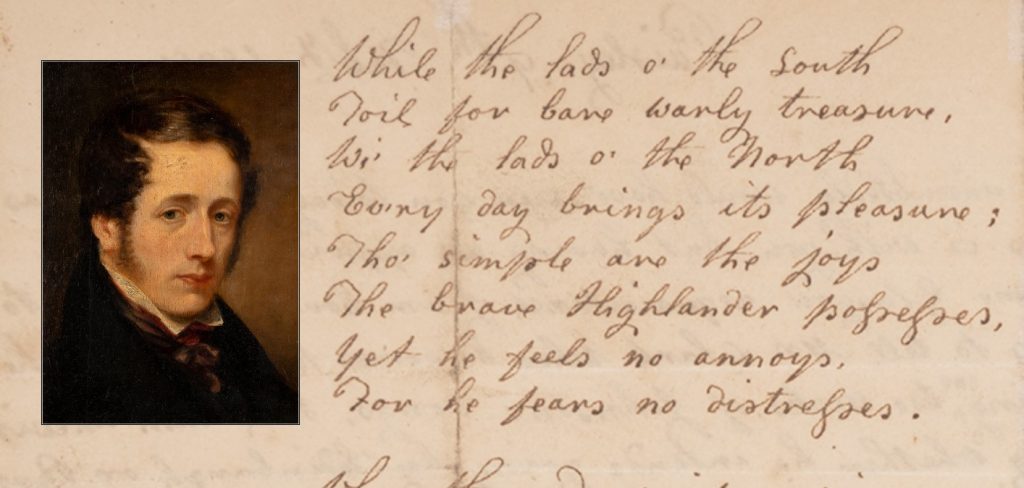 While the lads o' the South
Toil for bare warly treasure,
Wi' the lads o' the North
Every day brings its pleasure;
Tho' simple are the joys
The brave Highlander possesses,
Yet he feels no annoys,
For he fears no distresses.